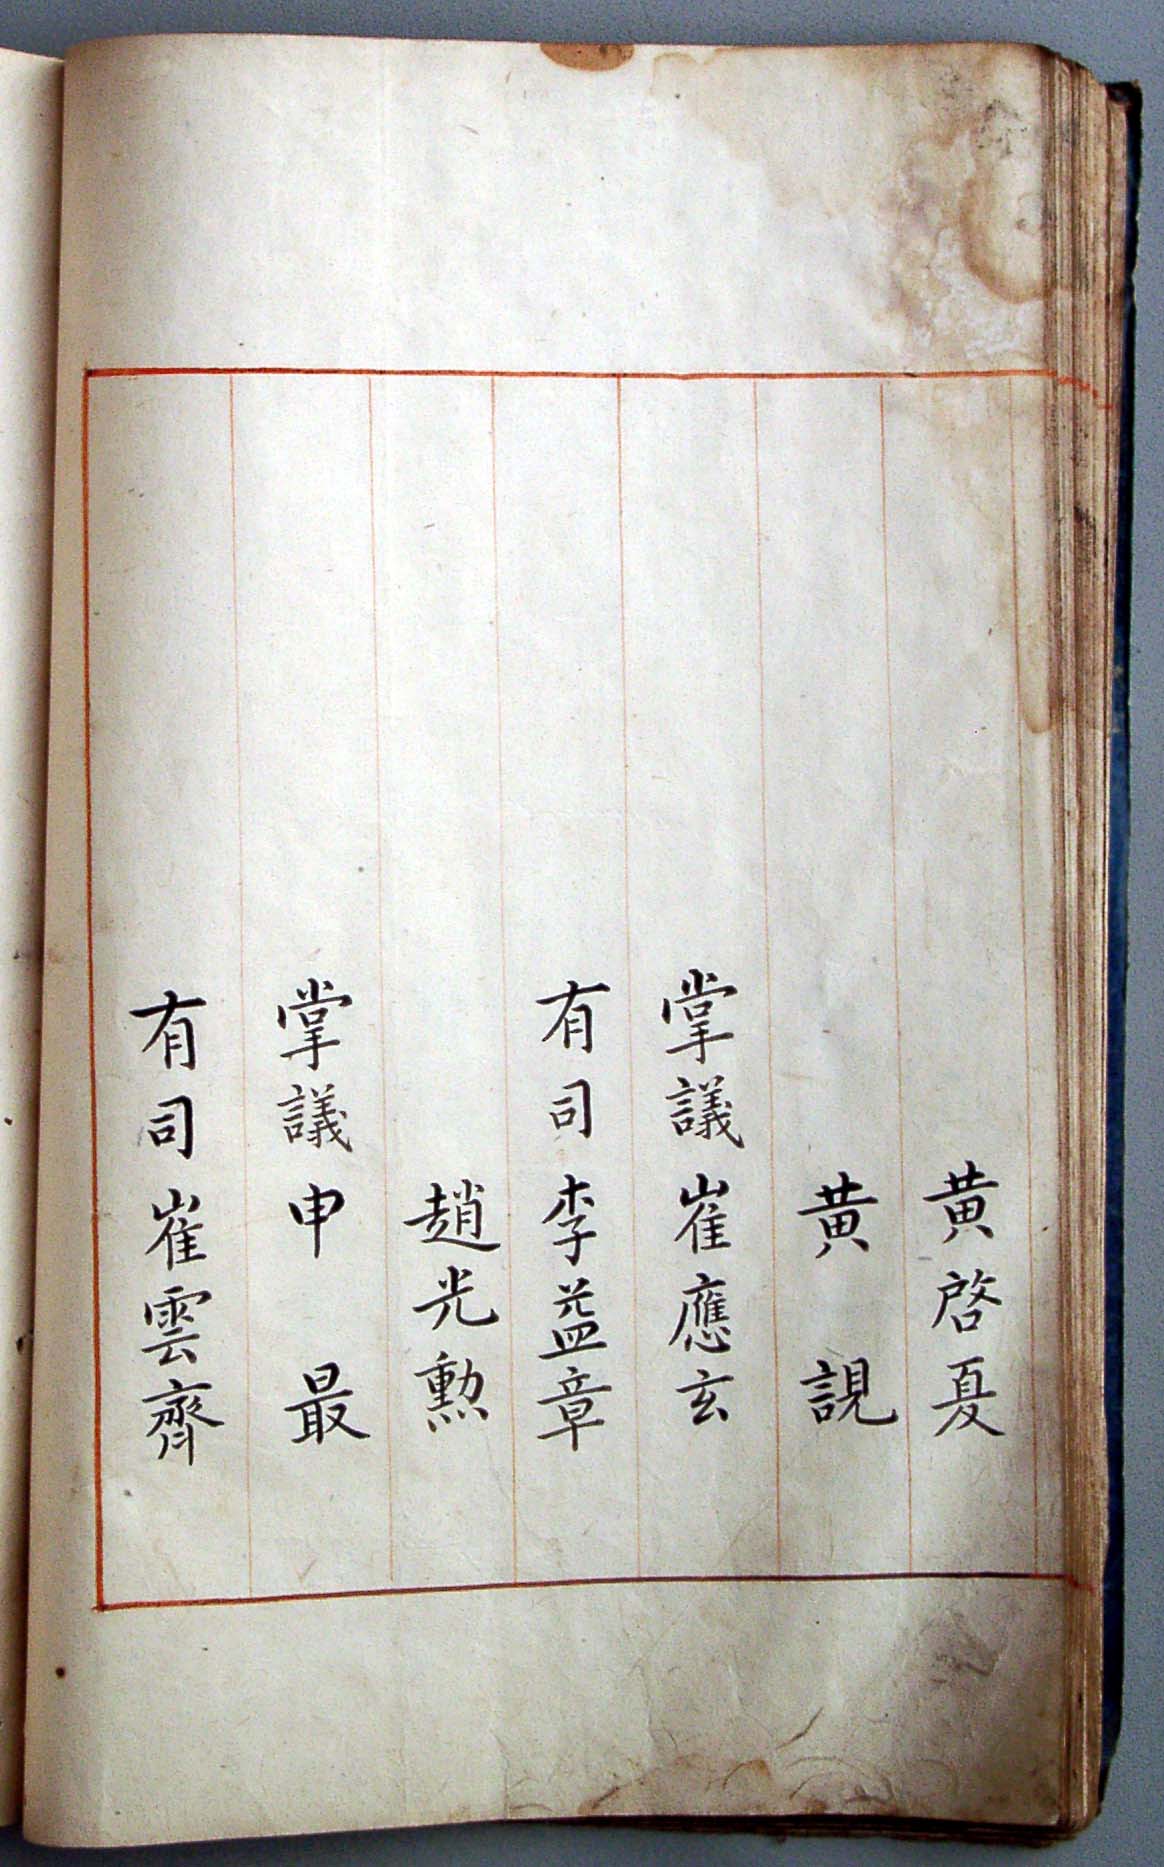 黄啓夏
黄䚾
掌議崔應玄
有司李益章
趙光勲
掌議申最
有司崔雲齊